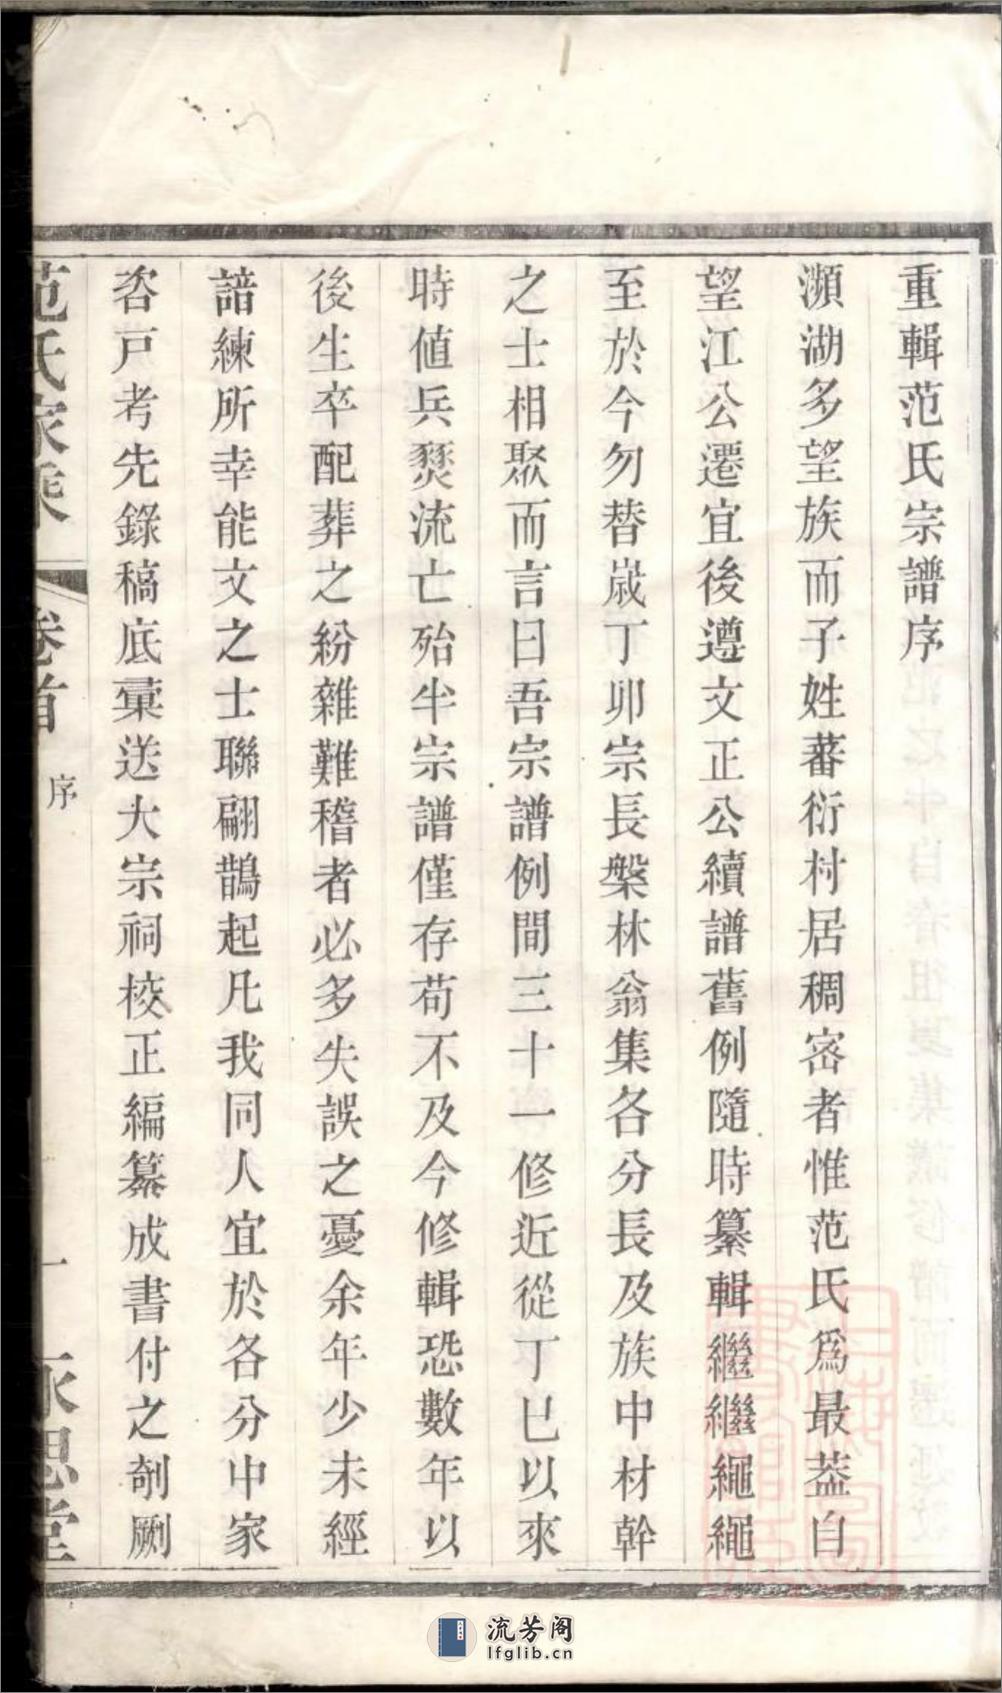 重輯范氏宗譜序
瀕湖多望族而子姓蕃衍村居稠密者惟范氏爲最葢自
望江公遷宜後遵文正公續譜舊例隨時纂輯繼繼繩繩
至於今勿替嵗丁卯宗長槃林翁集各分長及族中材幹
之士相聚而言曰吾宗譜例間三十一修近從丁巳以來
時值兵燹流亡殆半宗譜僅存苟不及今修輯恐數年以
後生卒配葬之紛雜難稽者必多失誤之憂余年少未經
諳練所幸能文之士聯翩鵲起凡我同人宜於各分中家
咨戸考先錄稿底彚送大宗祠校正編纂成書付之剞劂
范氏家乘 卷首 序 一 永思堂
流芳阁
lfglib.cn